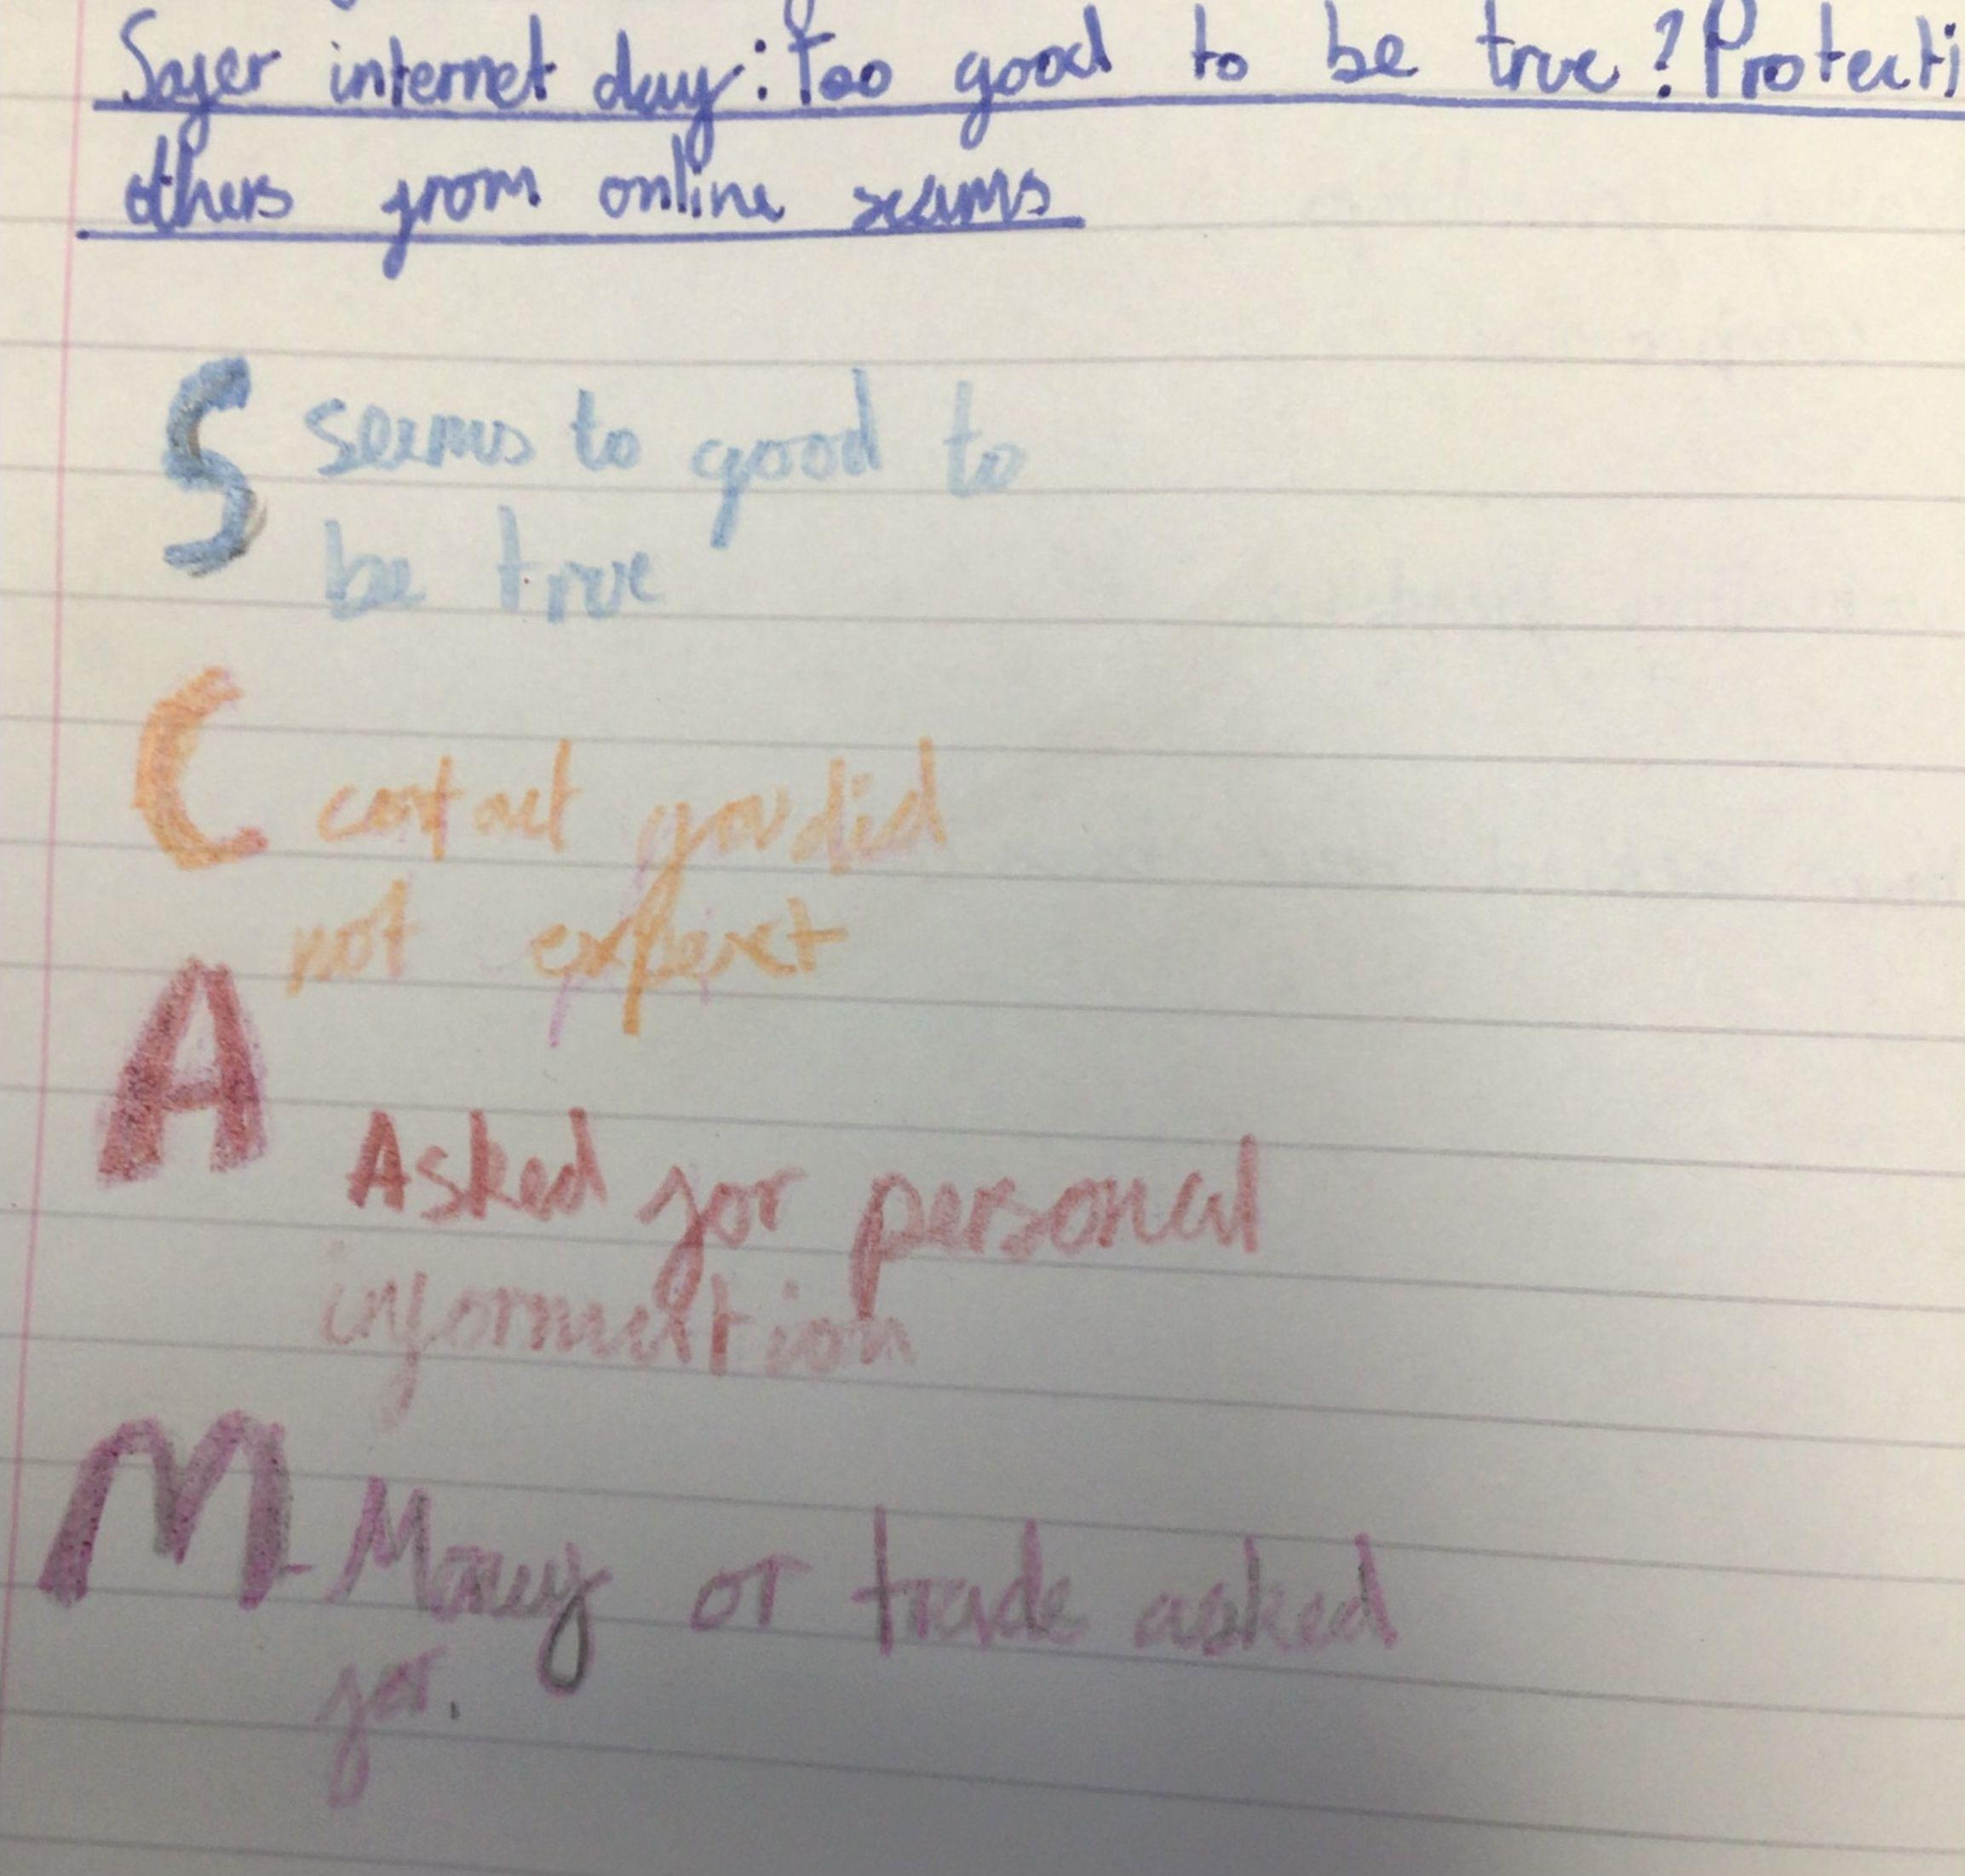 Safer internet day: Too good to be true? Protecti
others from online scams
S seems to good to
be true
C contact you did
not expect
A
Asked for personal
information
M - Money or trade asked
for.